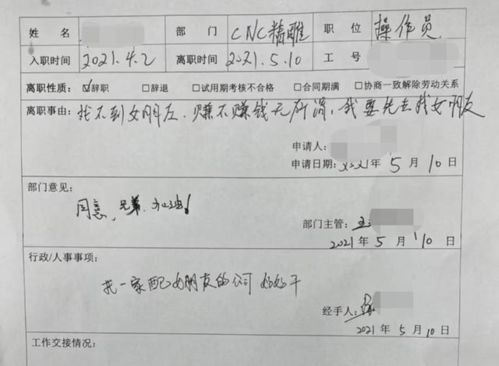 姓名 部门 CNC精雕 职位 操作员
入职时间 2021.4.2 离职时间 2021.5.10 工号
离职性质: ☑辞职 □辞退 □试用期考核不合格 □合同期满 □协商一致解除劳动关系
离职事由: 找不到女朋友、赚不赚钱无所谓,我要先去找女朋友
申请人:
申请日期: 2021年 5 月 10 日
部门意见:
同意,兄弟,加油!
部门主管: 王
2021年 5 月 10 日
行政/人事事项:
找一家配女朋友的公司 好好干
经手人:
2021年 5 月 10 日
工作交接情况: